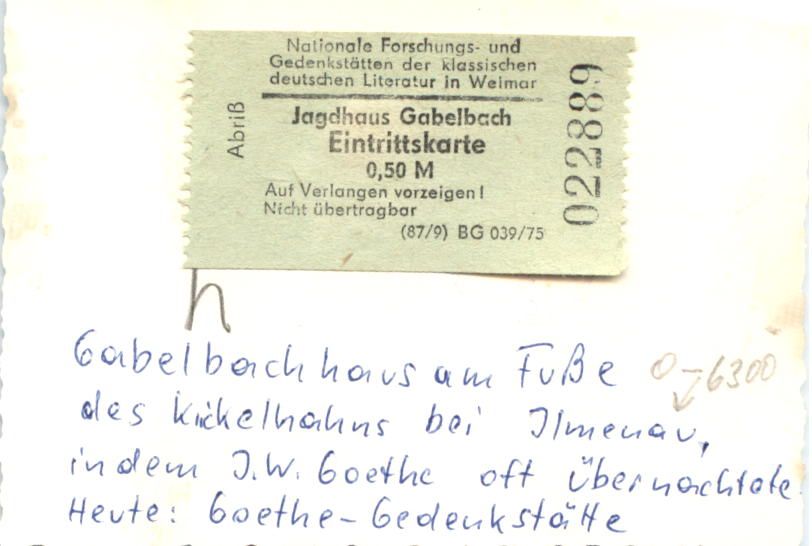 Nationale Forschungs- und
Gedenkstätten der klassischen
deutschen Literatur in Weimar
Abriß
Jagdhaus Gabelbach
Eintrittskarte
0,50 M
Auf Verlangen vorzeigen!
Nicht übertragbar
(87/9) BG 039/75
022889
h
Gabelbachhaus am Fuße
O-6300
des Kickelhahns bei Ilmenau,
indem J.W. Goethe oft übernachtete.
Heute: Goethe-Gedenkstätte